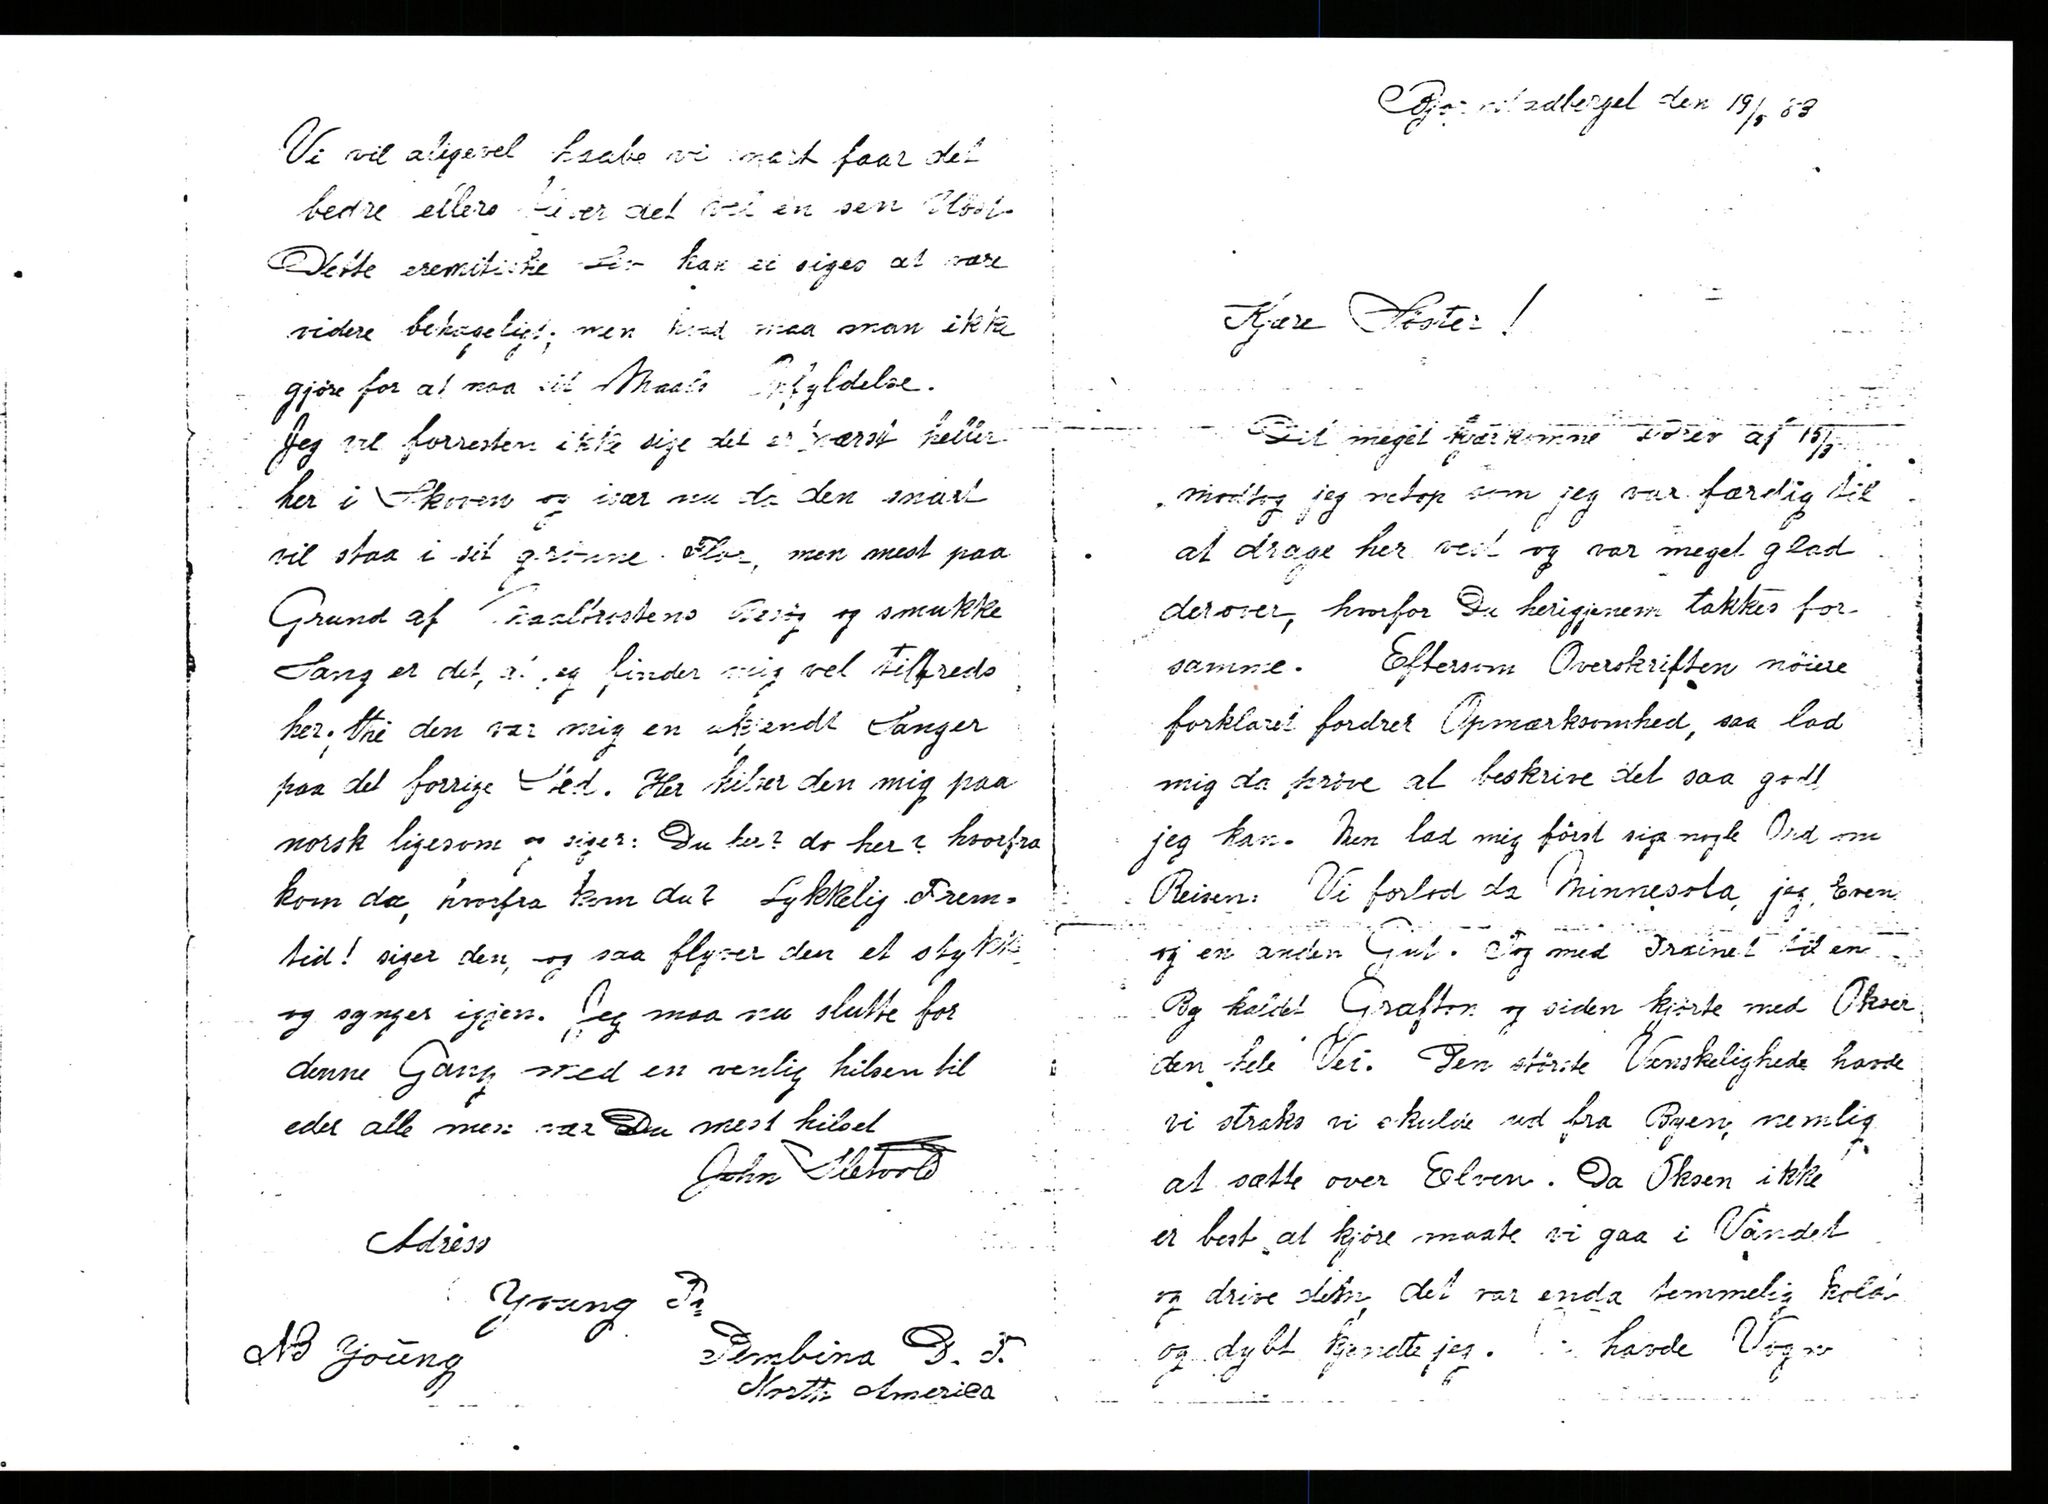 den 19/5 83
Kjære Søster!
Dit meget kjærkomne Brev af 15/3
modtog jeg netop som jeg var færdig til
at drage her ved og var meget glad
derover, hvorfor Du herigjenem takkes for
samme. Eftersom Overskriften nöiere
forklaret fordrer Opmærksomhed, saa lad
mig da pröve at beskrive det saa godt
jeg kan. Men lad mig först sige nogle Ord om
Reisen: Vi forlod da Minnesota, jeg, Even
og en anden Gut. Tog med Trainet til en
By kaldet Grafton og siden kjörte med Okser
den hele Vei. Den störste Vanskelighede havde
vi straks vi skulde ud fra Byen, nemlig
at sætte over Elven. Da Oksen ikke
er best at kjöre maate vi gaa i Vandet
og drive dem, det var enda temmelig kold
og dybt kjendte jeg. havde Vogn
Vi vil aligevel haabe vi snart faar det
bedre ellers bliver det vel en sen Höst.
Dette eremitiske Liv kan ei siges at være
videre behageligt; men hvad maa man ikke
gjöre for at naa sit Maals Opfyldelse.
Jeg vil forresten ikke sige det er værst heller
her i Skoven og især nu da den snart
vil staa i sit grönne Flor, men mest paa
Grund af Maaltrostens Besög og smukke
Sang er det, at jeg finder mig vel tilfreds
her, thi den var mig en ukjendt Sanger
paa det forrige Sted. Her hilser den mig paa
norsk ligesom og siger: Du her? du her? hvorfra
kom du, hvorfra kom du? Lykkelig Frem-
tid! siger den, og saa flyver den et stykke
og synger igjen. Jeg maa nu slutte for
denne Gang med en venlig hilsen til
eder alle men vær Du mest hilset
John Sletvold
Adress
Young Po
NB Young Pembina D. T.
North America